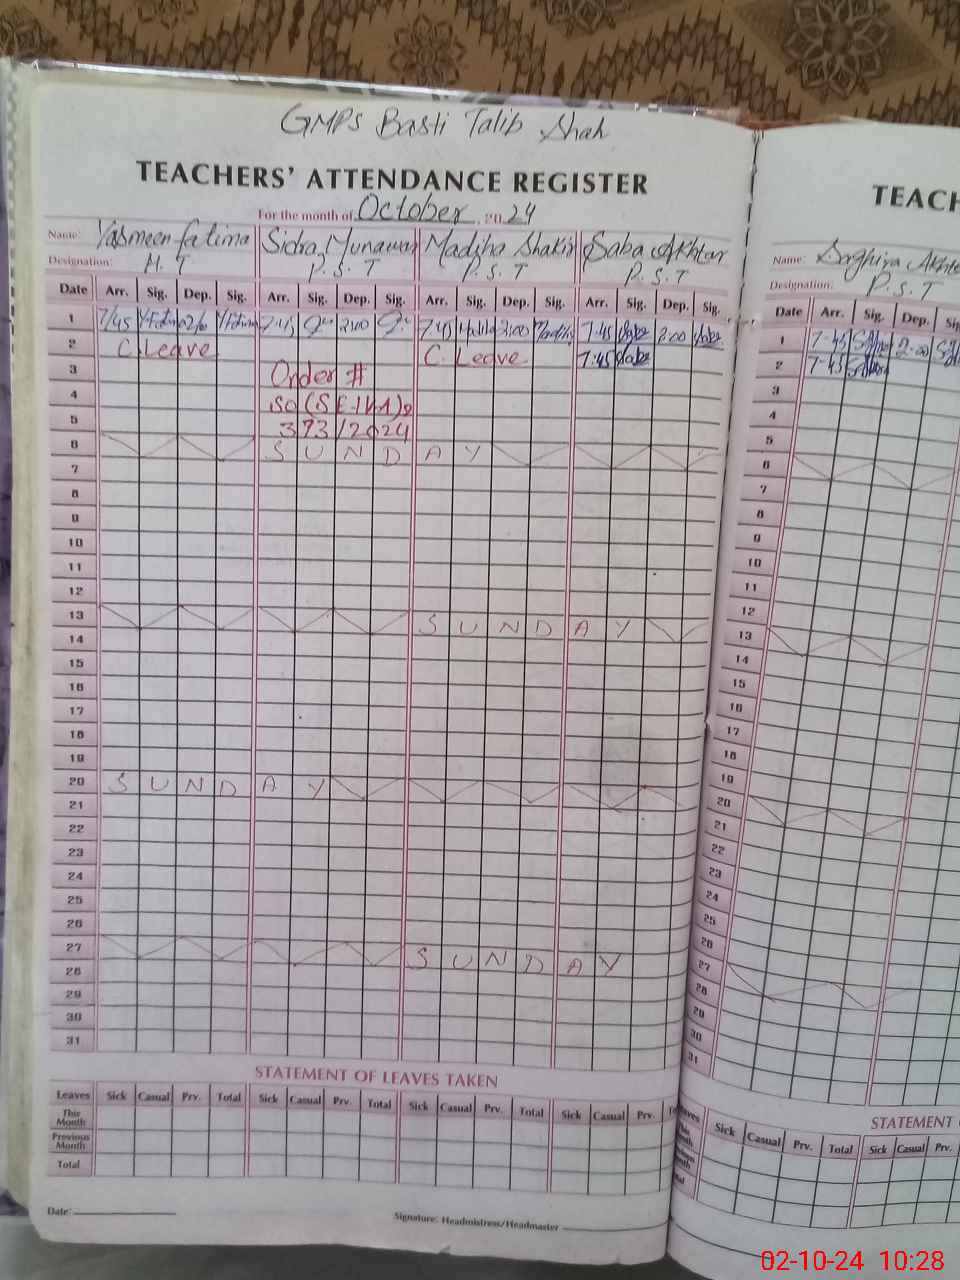 GMPS Basti Talib Shah
TEACHERS' ATTENDANCE REGISTER
For the month of October, 2024
Name: Yasmeen fatima Sidra Munawar Madiha Shakir Saba Akhtar
Designation: H. T P. S. T P. S. T P. S. T
Date Arr. Sig. Dep. Sig. Arr. Sig. Dep. Sig. Arr. Sig. Dep. Sig. Arr. Sig. Dep. Sig.
1 7/45 7:45 2:00 7:45 2:00 7:45 Saba 2:00 Saba
2 C. Leave C. Leave 7:45 Saba
3 Order #
4
5 373/2024
6 SUNDAY
7
8
9
10
11
12
13 SUNDAY
14
15
16
17
18
19
20 SUNDAY
21
22
23
24
25
26
27 SUNDAY
28
29
30
31
STATEMENT OF LEAVES TAKEN
Leaves Sick Casual Prv. Total Sick Casual Prv. Total Sick Casual Prv. Total Sick Casual Prv.
This Month
Previous Month
Total
Date:
Signature: Headmistress/Headmaster
TEACH
Name: Saghira Akhte
Designation: P. S. T
Date Arr. Sig. Dep.
1 7-45 2-00
2 7-45
3
4
5
6
7
8
9
10
11
12
13
14
15
16
17
18
19
20
21
22
23
24
25
26
27
28
29
30
31
STATEMENT
Sick Casual Prv. Total Sick Casual Prv.
02-10-24 10:28